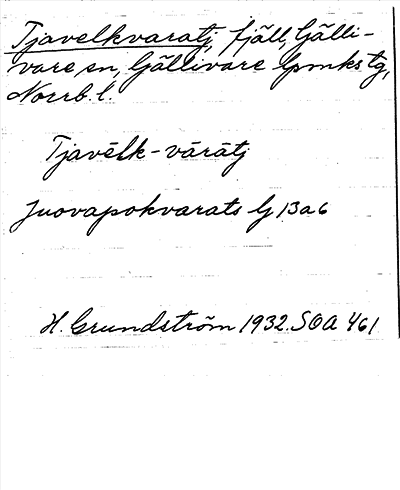 Tjavelkvaratj, fjäll, Gälli-
vare sn, Gällivare lpmks tg,
Norrb. l.
Tjavēlk-vārātj
Juovapokvarats lj 13a6
H. Grundström 1932. SOA 461